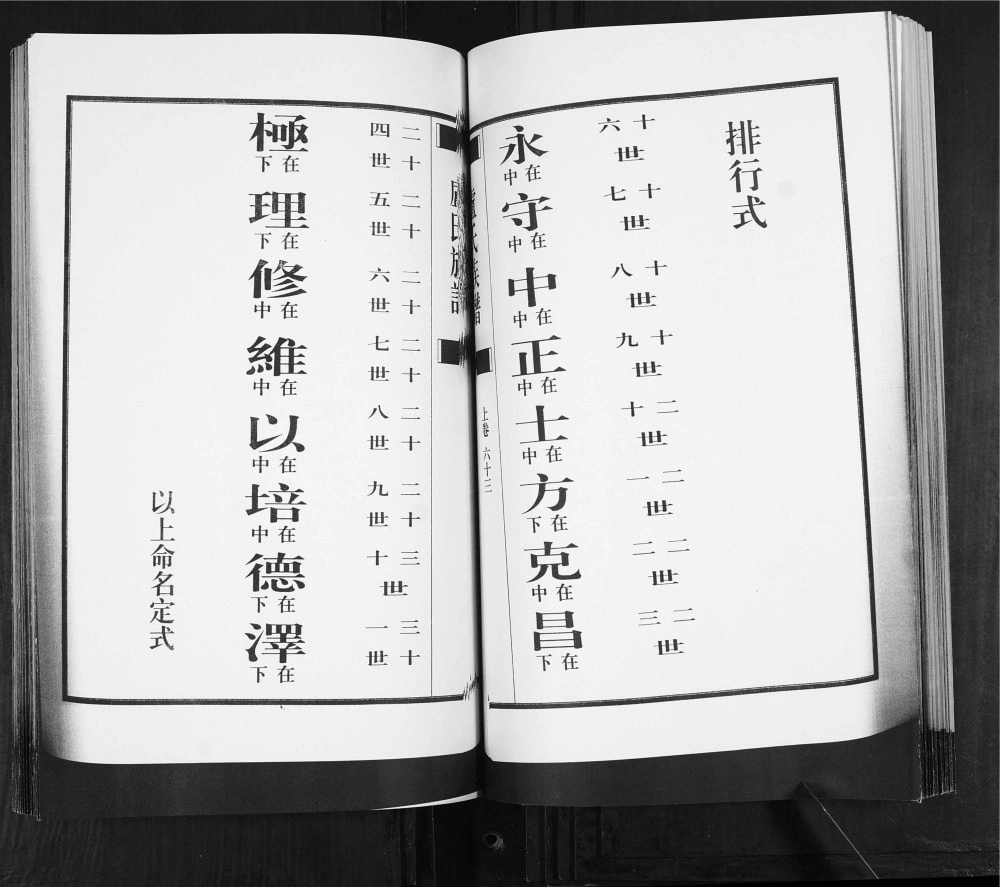 排行式
十六世 十七世 十八世 十九世 二十世 二一世 二二世 二三世
永在中 守在中 中在中 正在中 士在中 方在下 克在中 昌在下
盧氏族譜
上卷 六十三
二十四世 二十五世 二十六世 二十七世 二十八世 二十九世 三十世 三十一世
極在下 理在下 修在中 維在中 以在中 培在中 德在下 澤在下
以上命名定式